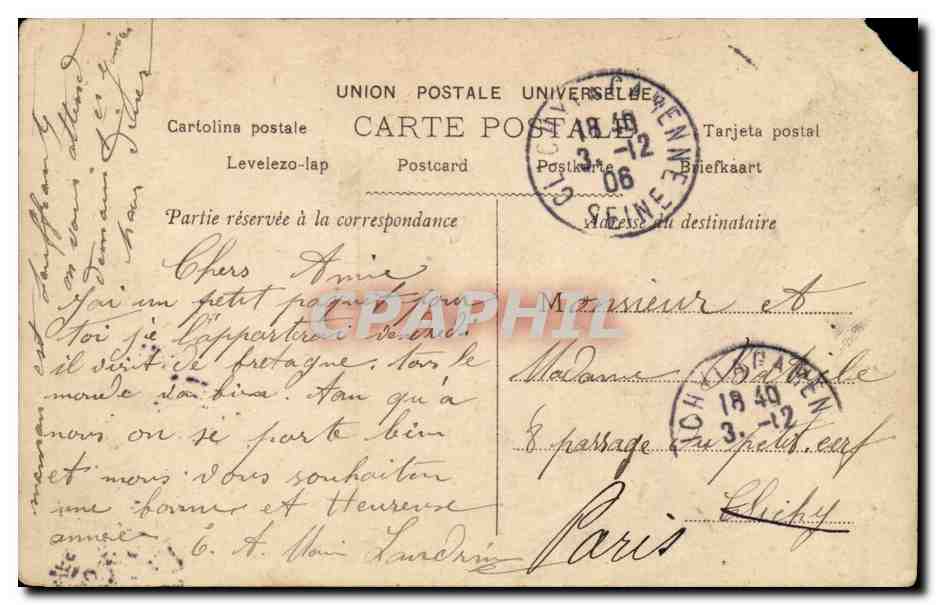 UNION POSTALE UNIVERSELLE
CARTE POSTALE
Cartolina postale
Tarjeta postal
Levelezo-lap
Postcard
Postkarte
Briefkaart
Partie réservée à la correspondance
Adresse du destinataire
CLICHY-LA-GARENNE
18 40
3. -12
06
SEINE
Chers Amie
J'ai un petit paquet pour
toi je l'apporterai vendredi
il vient de bretagne. tous le
monde va bien. 
nous on se porte bien
et nous vous souhaiton
une bonne et Heureuse
année
maman est souffrante
on vous attend
demain
Monsieur et
Madame
8 passage du petit. cerf
Clichy
Paris
CLICHY-LA-GARENNE
18 40
3. -12
CPAPHIL